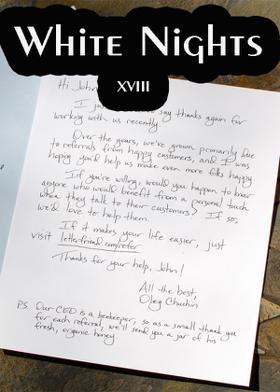 White Nights
XVIII
Hi John
I just say thanks again for
working with us recently
Over the years, we've grown primarily due
to referrals from happy customers, and I was
hoping you'd help us make even more folks happy
If you're willing, would you happen to know
anyone who would benefit from a personal touch
when they talk to their customers? If so,
we'd love to help them.
If it makes your life easier, just
visit letterfriend.com/refer
Thanks for your help, John!
All the best,
Oleg
P.S. Our CEO is a beekeeper, so as a small thank you
for each referral, we'll send you a jar of his
fresh, organic honey